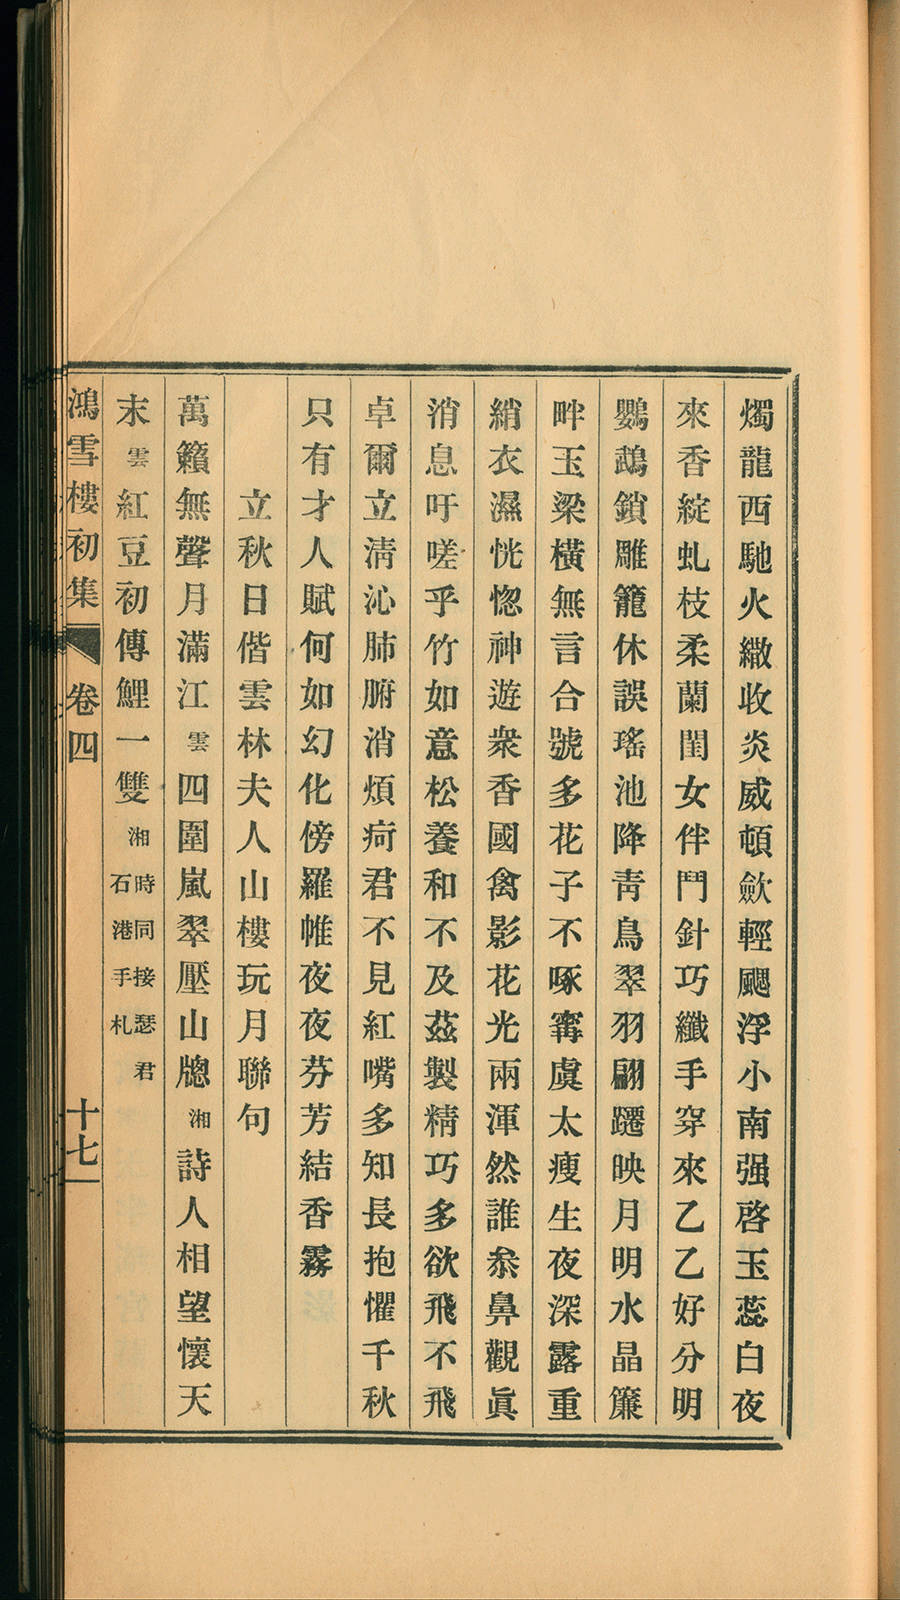 燭龍西馳火繖收炎威頓歛輕颸浮小南强啓玉蕊白夜
來香綻虬枝柔蘭閨女伴鬥針巧纖手穿來乙乙好分明
鸚鵡鎖雕籠休誤瑤池降靑鳥翠羽翩躚映月明水晶簾
畔玉梁橫無言合號多花子不啄寗虞太瘦生夜深露重
綃衣濕恍惚神遊衆香國禽影花光兩渾然誰叅鼻觀眞
消息吁嗟乎竹如意松養和不及茲製精巧多欲飛不飛
卓爾立淸沁肺腑消煩疴君不見紅嘴多知長抱懼千秋
只有才人賦何如幻化傍羅帷夜夜芬芳結香霧
立秋日偕雲林夫人山樓玩月聯句
萬籟無聲月滿江雲四圍嵐翠壓山牕湘詩人相望懷天
末雲紅豆初傳鯉一雙湘時同接瑟君石港手札
鴻雪樓初集 卷四 十七